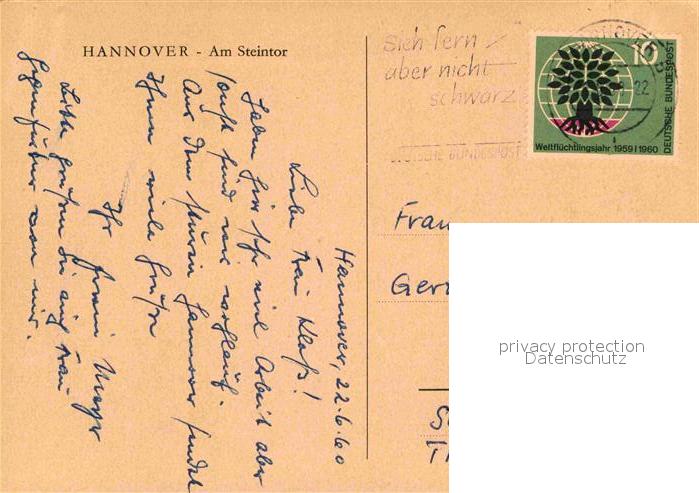 HANNOVER - Am Steintor
Hannover, 22.6.60
Liebe Frau Klaß!
Habe hier sehr viel Arbeit aber
sonst sind wir
Aus dem Hannover sendet
Ihnen viele Grüße
Ihr
Bitte grüßen Sie auch Frau
von mir.
Sieh fern
aber nicht
schwarz
DEUTSCHE BUNDESPOST
10
DEUTSCHE BUNDESPOST
Weltflüchtlingsjahr 1959/1960
22
Frau
Ger
privacy protection
Datenschutz